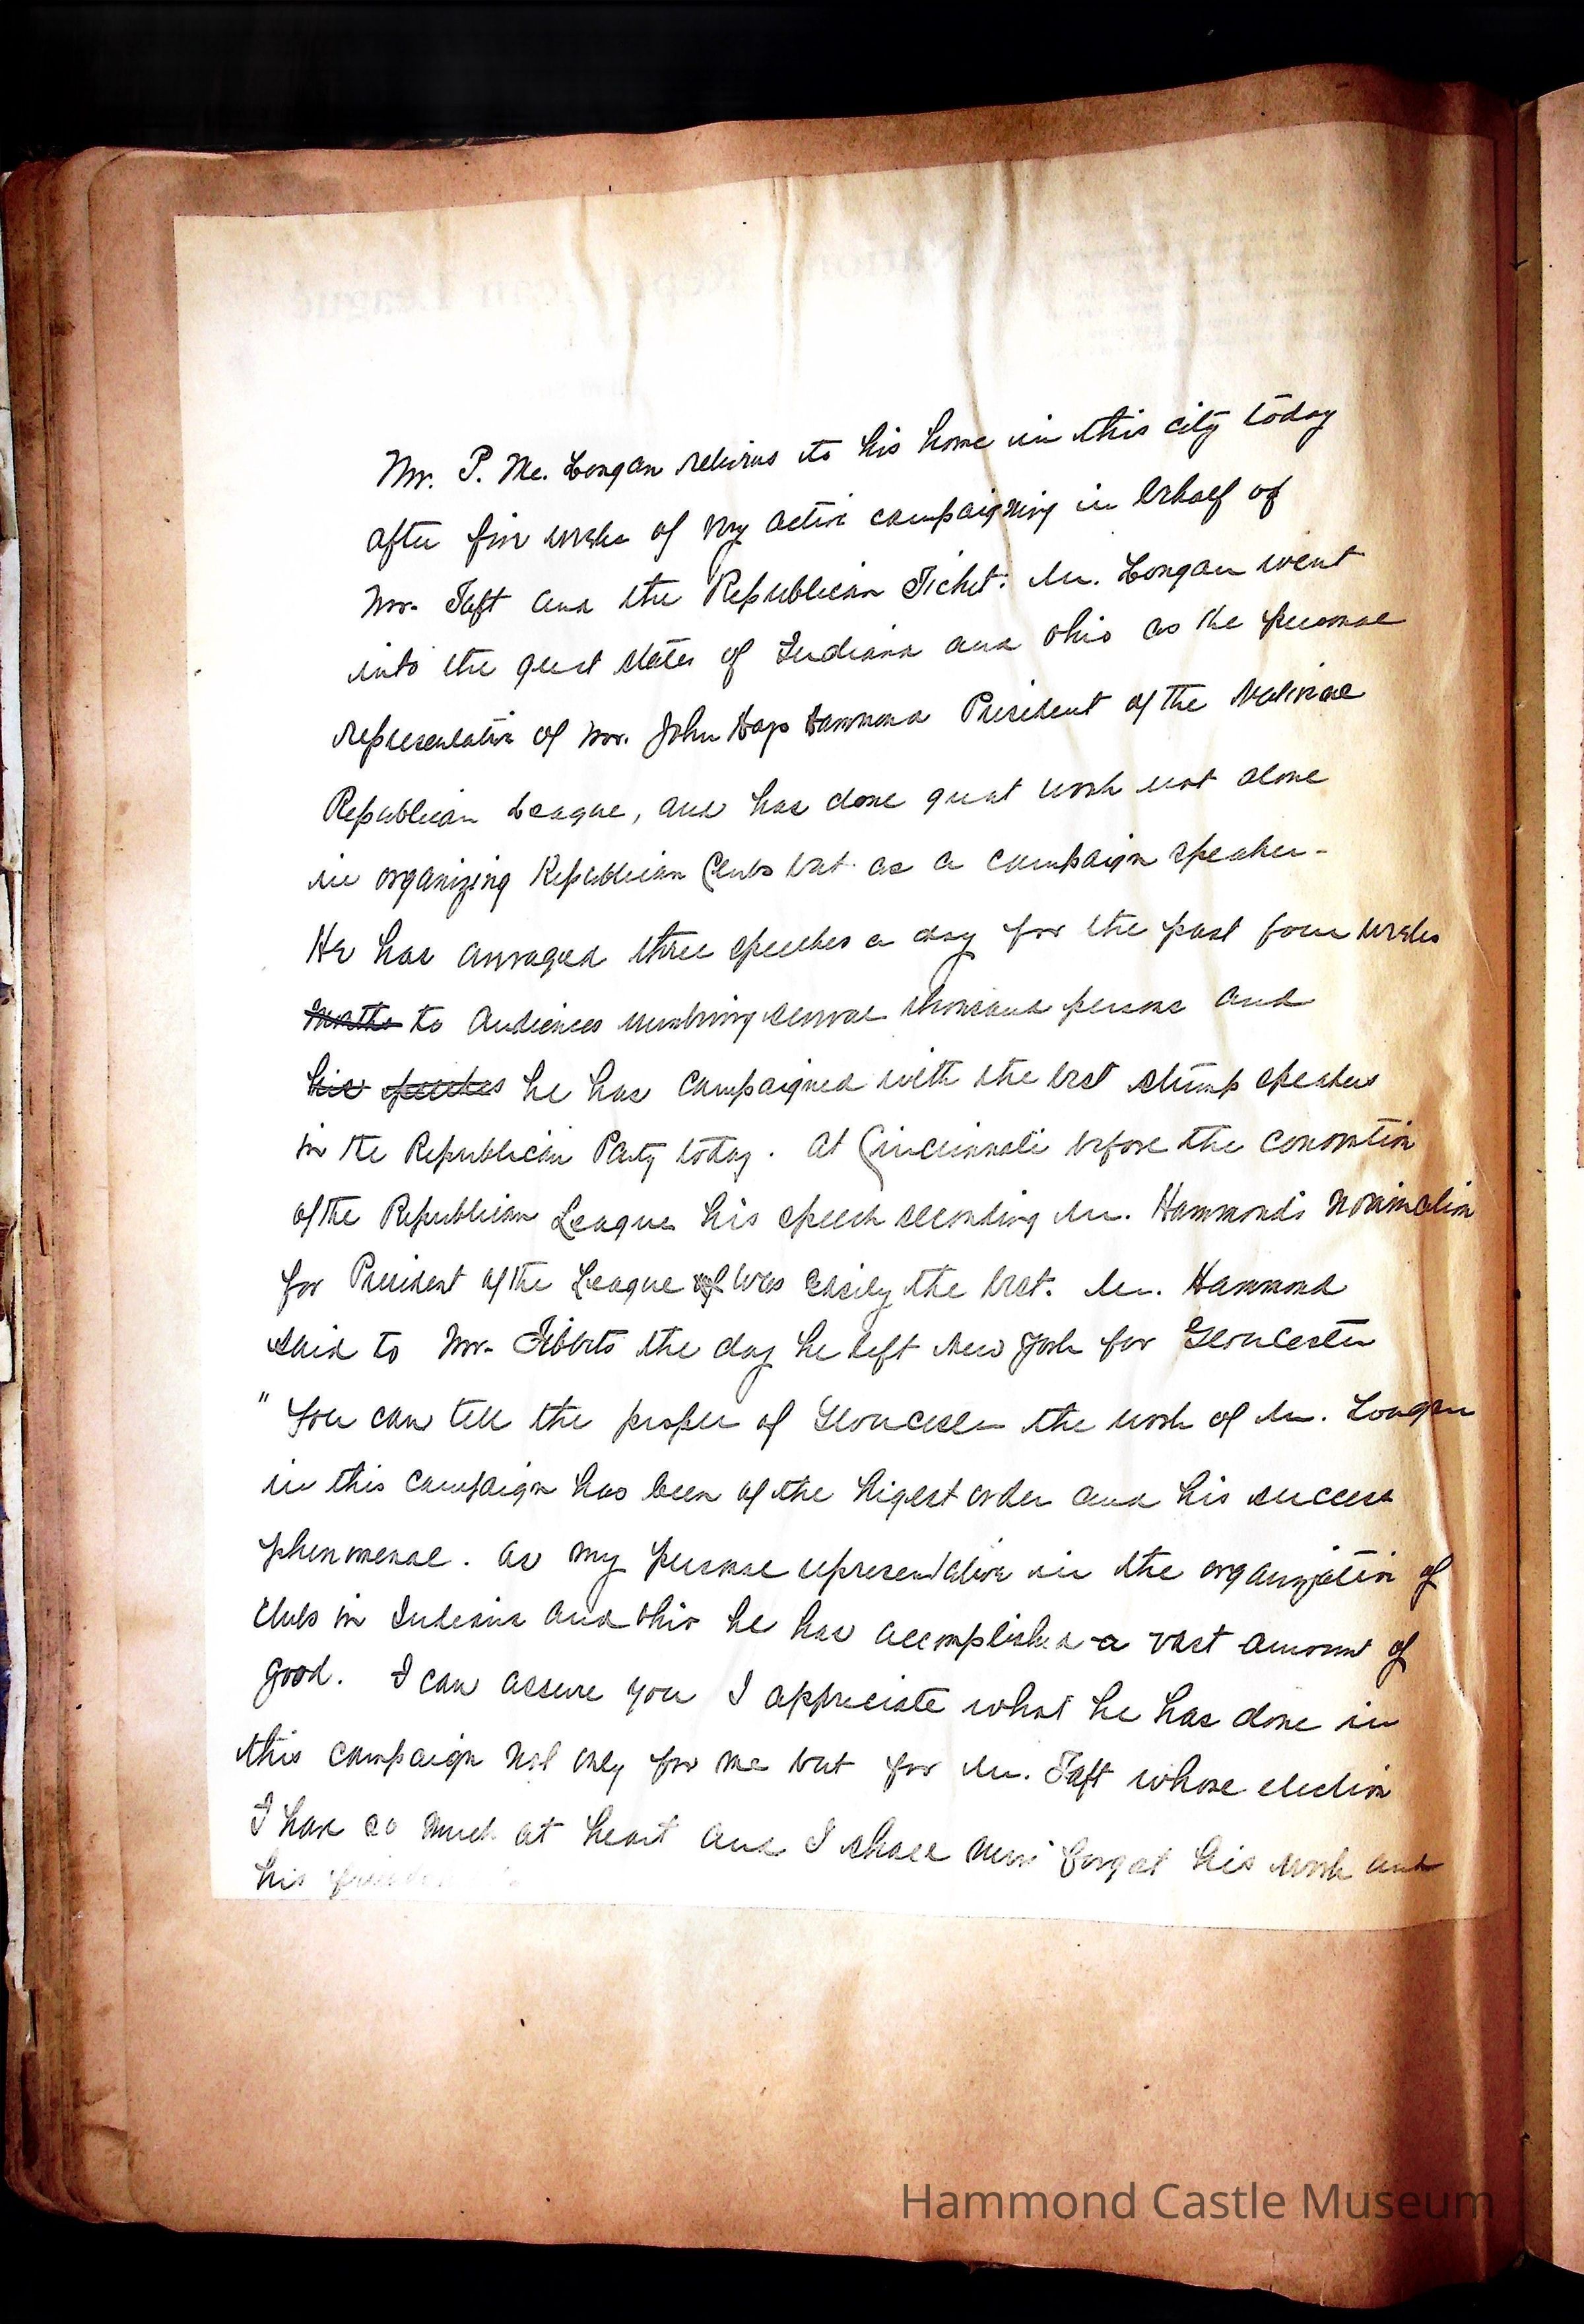 Mr. P. Mc. Longan returns to his home in this city today
after five weeks of very active campaigning in behalf of
Mr. Taft and the Republican Ticket. Mr. Longan went
into the great states of Indiana and Ohio as the personal
representative of Mr. John Hays Hammond President of the National
Republican League, and has done great work not alone
in organizing Republican Clubs but as a campaign speaker.
He has averaged three speeches a day for the past four weeks
months to audiences numbering several thousand persons and
his speeches he has campaigned with the best stump speakers
in the Republican Party today. At Cincinnati before the convention
of the Republican League his speech seconding Mr. Hammond's nomination
for President of the League was easily the best. Mr. Hammond
said to Mr. Tibbets the day he left New York for Gloucester
" You can tell the people of Gloucester the work of Mr. Longan
in this campaign has been of the higest order and his success
phenomenal. As my personal representative in the organization of
Clubs in Indiana and Ohio he has accomplished a vast amount of
good. I can assure you I appreciate what he has done in
this campaign not only for me but for Mr. Taft whose election
I have so much at heart and I shall never forget his work and
his
Hammond Castle Museum